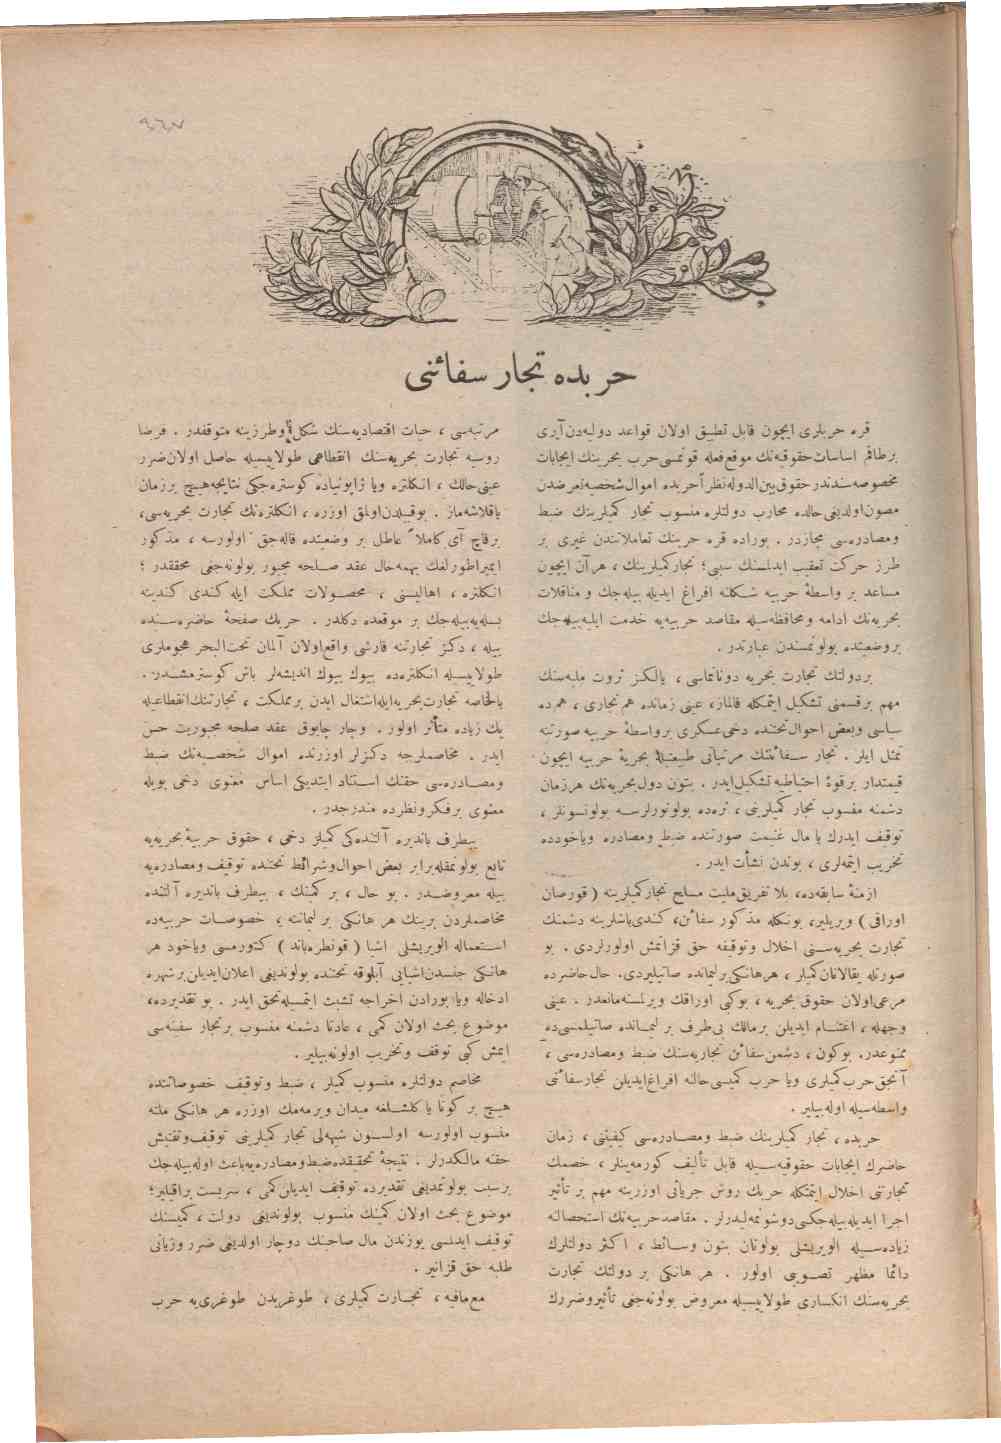 ٩٦٧
حربده تجار سفائنى
قره حربلرى ايچون قابل تطبيق اولان قواعد دوليه‌دن آيرى
برطاقم اساسات حقوقيه‌نك موقع فعله قونمسى حرب بحرينك ايجابات
مخصوصه‌سندندر حقوق بين‌الدوله نظراً حربده اموال شخصيه تعرضدن
مصون اولديغى حالده محارب دولتلره منسوب تجار كميلرينك ضبط
ومصادره‌سى مجازدر . بوراده قره حربنك تعاملاتندن غيرى بر
طرز حركت تعقيب ايدلمسنك سببى ؛ تجار كميلرينك ، هر آن ايچون
مساعد بر واسطهٔ حربيه شكلنه افراغ ايديله بيله‌جك و مناقلات
بحريه‌نك ادامه و محافظه‌سيله مقاصد حربيه‌يه خدمت ايليه‌بيله‌جك
بر وضعيتده بولونمسندن عبارتدر .
بر دولتك تجارت بحريه دونانماسى ، يالكز ثروت مليه‌سنك
مهم بر قسمنى تشكيل ايتمكله قالماز ، عينى زمانده هم تجارى ، هم ده
سياسى وبعض احوال تحتنده دخى عسكرى بر واسطهٔ حربيه صورتنه
تمثل ايلر . تجار سفائننك مرتباتى طبيعتيله بحريهٔ حربيه ايچون
قيمتدار بر قوهٔ احتياطيه تشكيل ايدر . بتون دول بحريه‌نك هر زمان
دشمنه منسوب تجار كميلرينى ، نره‌ده بولونورلرسه بولونسونلر ،
توقيف ايدرك يا مال غنيمت صورتنده ضبط ومصادره وياخودده
تخريب ايتمه‌لرى ، بوندن نشأت ايدر .
ازمنهٔ سابقه‌ده ، بلا تفريق مليت مسلح تجار كميلرينه ( قورصان
اوراقى ) ويريلير ، بونكله مذكور سفائن ، كندى باشلرينه دشمنك
تجارت بحريه‌سنى اخلال وتوقيفه حق قزانمش اولورلردى . بو
صورتله يقالانان كميلر ، هر هانكى بر ليمانده صاتيليردى . حال حاضرده
مرعى اولان حقوق بحريه ، بوكبى اوراقك ويرلمسنه مانعدر . عينى
وجهله ، اغتنام ايديلن بر مالك بى‌طرف بر ليمانده صاتيلمسى ده
ممنوعدر . بوكون ، دشمن سفائن تجاريه‌سنك ضبط ومصادره‌سى ،
آنجق حرب كميلرى ويا حرب كميسى حالنه افراغ ايديلن تجار سفائنى
واسطه‌سيله اوله بيلير .
حربده ، تجار كميلرينك ضبط ومصادره‌سى كيفيتنى ، زمان
حاضرك ايجابات حقوقيه‌سيله قابل تأليف كورمه‌ينلر ، خصمك
تجارتنى اخلال ايتمكله حربك روش جريانى اوزرينه مهم بر تأثير
اجرا ايديله‌بيله‌جكنى دوشونمه‌ليدرلر . مقاصد حربيه‌نك استحصالنه
زياده‌سيله الويريشلى بولونان بتون وسائط ، اكثر دولتلرك
دائما مظهر تصويبى اولور . هر هانكى بر دولتك تجارت
بحريه‌سنك انكسارى طولاييسيله معروض بولونه‌جغى تأثير وضررك
مرتبه‌سى ، حيات اقتصاديه‌سنك شكل وطرزينه متوقفدر . فرضا
روسيه تجارت بحريه‌سنك انقطاعى طولاييسيله حاصل اولان ضرر
عينى حالك ، انكلتره ويا ژاپونياده كوستره‌جكى نتايجه هيچ بر زمان
ياقلاشه‌ماز . بوقبيلدن اولمق اوزره ، انكلتره‌نك تجارت بحريه‌سى ،
برقاچ آى كاملاً عاطل بر وضعيتده قاله‌جق اولورسه ، مذكور
ايمپراطورلغك بهمه‌حال عقد صلحه مجبور بولونه‌جغى محققدر ؛
انكلتره ، اهاليسنى ، محصولات مملكت ايله كندى كندينه
بسله‌يه‌بيله‌جك بر موقعده دكلدر . حربك صفحهٔ حاضره‌سنده
بيله ، دكز تجارتنه قارشى واقع اولان آلمان تحت‌البحر هجوملرى
طولاييسيله انكلتره‌ده بيوك بيوك انديشه‌لر باش كوسترمشدر .
بالخاصه تجارت بحريه ايله اشتغال ايدن بر مملكت ، تجارتنك انقطاعيله
پك زياده متأثر اولور . وچار چابوق عقد صلحه مجبوريت حس
ايدر . مخاصملرجه دكزلر اوزرنده اموال شخصيه‌نك ضبط
ومصادره‌سى حقنك استناد ايتديكى اساس معنوى دخى بويله
معنوى بر فكر ونظرده مندرجدر .
بيطرف بانديره آلتنده‌كى كميلر دخى ، حقوق حربيهٔ بحريه‌يه
تابع بولونمقله برابر بعض احوال وشرائط تحتنده توقيف ومصادره‌يه
بيله معروضدر . بو حال ، بر كمينك ، بيطرف بانديره آلتنده
مخاصملردن برينك هر هانكى بر ليماننه ، خصوصات حربيه‌ده
استعماله الويريشلى اشيا ( قونطره‌باند ) كتورمسى وياخود هر
هانكى جنسدن اشيايى آبلوقه تحتنده بولونديغى اعلان ايديلن بر شهره
ادخاله ويا بورادن اخراجه تشبث ايتمسيله تحقق ايدر . بو تقديرده ،
موضوع بحث اولان كمى ، عادتا دشمنه منسوب بر تجار سفينه‌سى
ايمش كبى توقف وتخريب اولونه‌بيلير .
مخاصم دولتلره منسوب كميلر ، ضبط وتوقيف خصوصاتنده
هيچ بر كونا ياكلشلغه ميدان ويرمه‌مك اوزره هر هانكى ملته
منسوب اولورسه اولسون شبهه‌لى تجار كميلرينى توقيف وتفتيش
حقنه مالكدرلر . نتيجهٔ تحقيقده ضبط ومصادره‌يه باعث اوله‌بيله‌جك
برسبب بولونمديغى تقديرده توقيف ايديلن كمى ، سربست براقيلير ؛
موضوع بحث اولان كمينك منسوب بولونديغى دولت ، كميسنك
توقيف ايدلمسى يوزندن مال صاحبنك دوچار اولديغى ضرر وزيانى
طلبه حق قزانير .
مع‌مافيه ، تجارت كميلرى ، طوغريدن طوغرى‌يه حرب